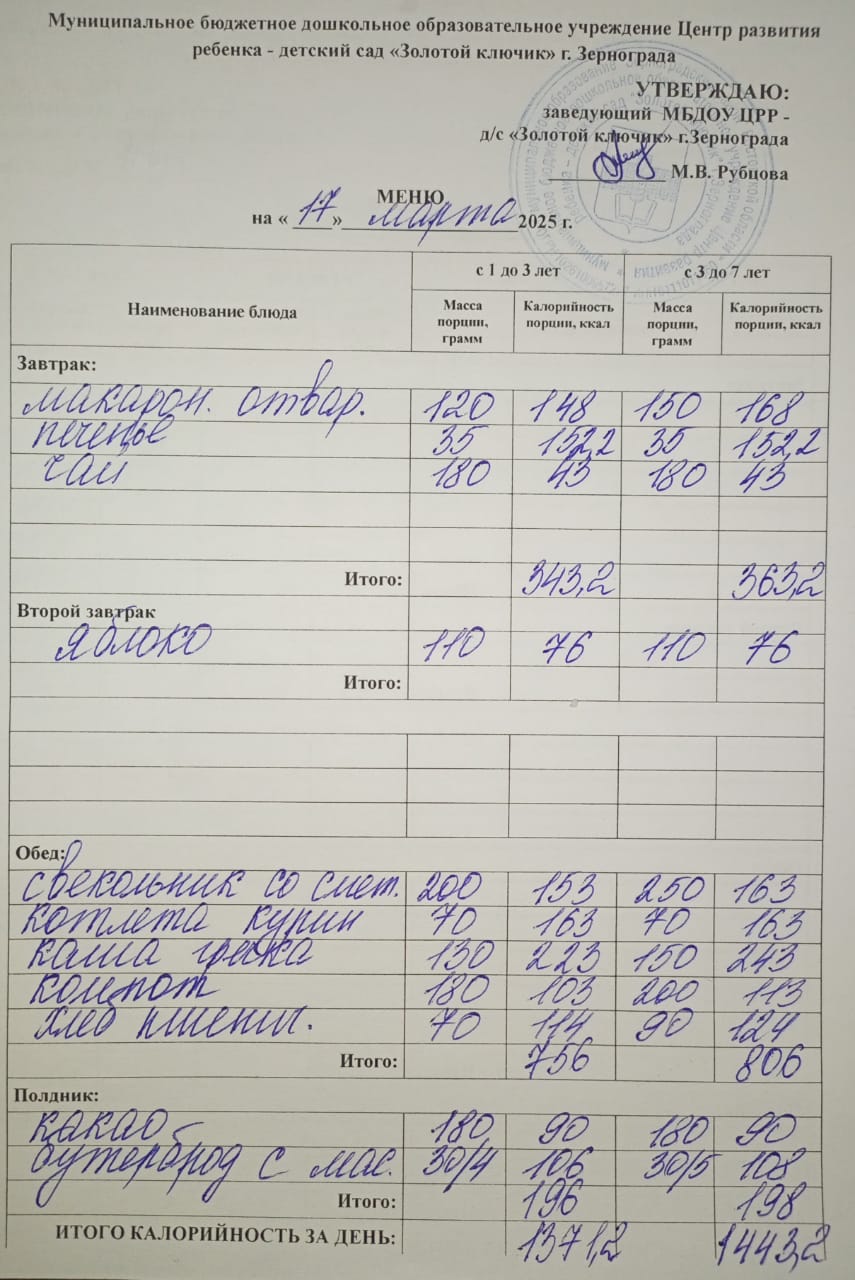 Муниципальное бюджетное дошкольное образовательное учреждение Центр развития
ребенка - детский сад «Золотой ключик» г. Зернограда
УТВЕРЖДАЮ:
заведующий МБДОУ ЦРР -
д/с «Золотой ключик» г.Зернограда
М.В. Рубцова
МЕНЮ
на « 17 » марта 2025 г.
Наименование блюда с 1 до 3 лет с 3 до 7 лет
Масса порции, грамм Калорийность порции, ккал Масса порции, грамм Калорийность порции, ккал
Завтрак:
макарон. отвар. 120 148 150 168
печенье 35 152,2 35 152,2
чай 180 43 180 43
Итого: 343,2 363,2
Второй завтрак
яблоко 110 76 110 76
Итого:
Обед:
свекольник со смет. 200 153 250 163
котлета курин 70 163 70 163
каша гречка 130 223 150 243
компот 180 103 200 113
хлеб пшенич. 70 114 90 124
Итого: 756 806
Полдник:
какао 180 90 180 90
бутерброд с мас. 30/4 106 30/5 108
Итого: 196 198
ИТОГО КАЛОРИЙНОСТЬ ЗА ДЕНЬ: 1371,2 1443,2